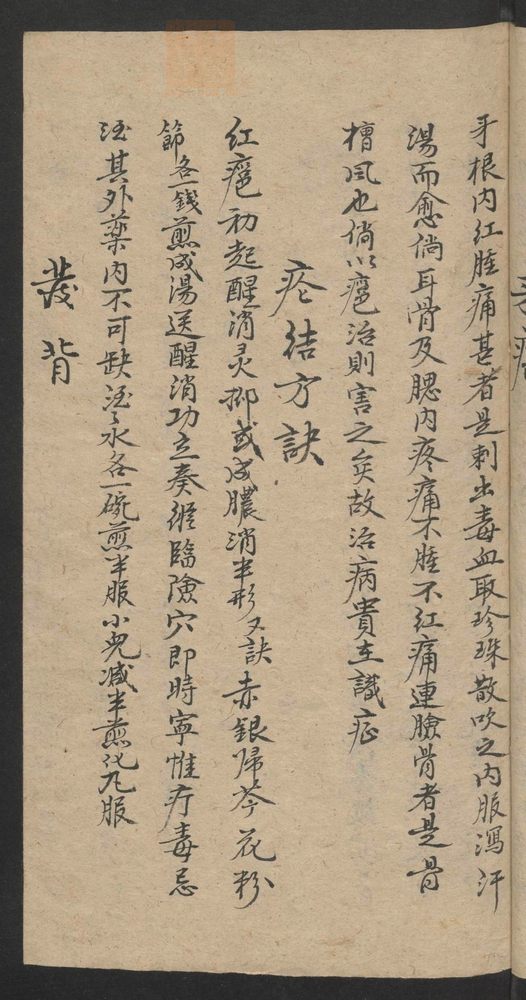 牙根内红腫痛甚者是刺出毒血取珍珠散吹之内服瀉汗
湯而愈倘耳骨及腮内疼痛不腫不红痛連臉骨者是骨
槽风也倘以疽治則害之矣故治病貴在識症
疮结方訣
红疽初起醒消灵抑或成膿消半形又訣赤銀歸芩花粉
節各一錢煎成湯送醒消功立奏縱臨險穴即時寧惟疔毒忌
酒其外藥内不可缺酒〻水各一碗煎半服小兒減半煎化丸服
發背